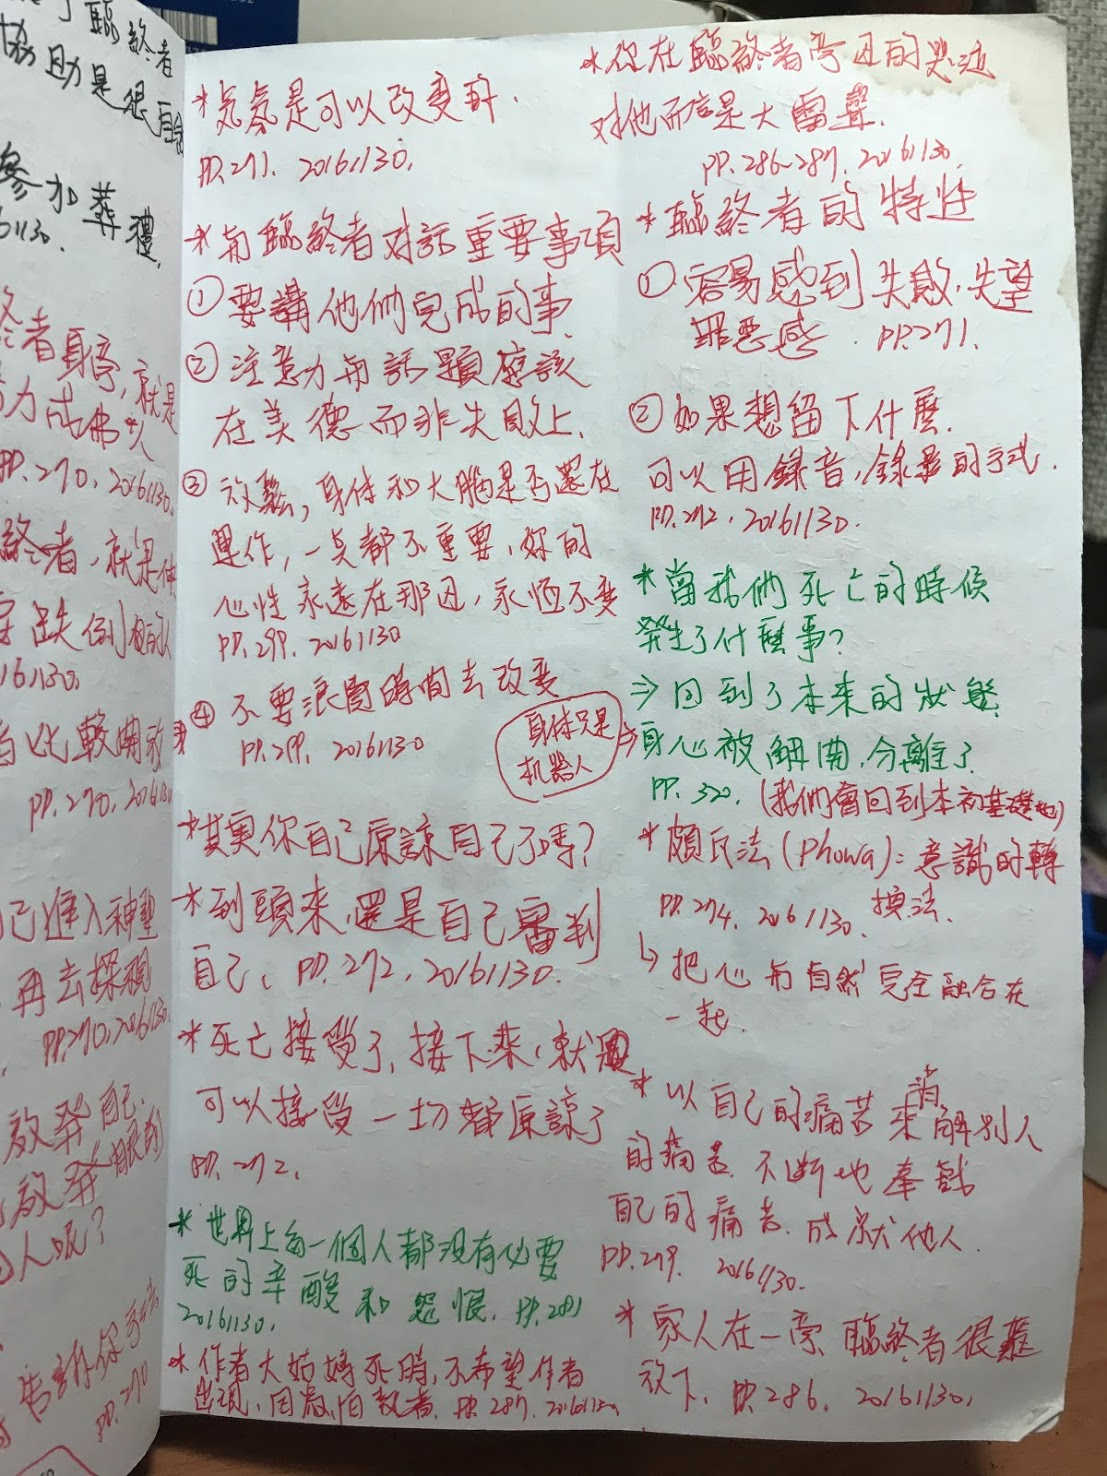 臨終者
協助是很自
參加葬禮,
6130.
終者身旁,就是
力成佛
PP.270, 20161130.
終者,就是
要跌倒
16.1130.
比較開放
PP.270, 2016
己進入神聖
再去探視
PP.270, 20161130.
放棄自己.
放棄
人呢?
告訴你
PP.270
*氣氛是可以改变的.
PP.271. 20161130.
*与臨終者对話重要事項
①要講他們完成的事.
②注意力与話題應該
在美德而非失敗上.
③放鬆,身体和大腦是否還在
運作,一点都不重要,妳的
心性永遠在那边,永恆不变
PP.299. 20161130
④不要浪費時間去改变
PP.299. 20161130
身体只是
机器人
*其實你自己原諒自己了嗎?
*到頭來,還是自己審判
自己. PP.272, 20161130.
*死亡接受了,接下來,就
可以接受一切都原諒了
PP.272.
*世界上每一個人都沒有必要
死的辛酸和怨恨. PP.281
20161130.
*作者大姑媽死時,不希望作者
出現,因為怕執著. PP.287. 20161130.
*你在臨終者旁边的哭泣
对他而言是大雷聲.
PP.286~287. 20161130.
*臨終者的特性
①容易感到失敗.失望
罪惡感. PP.271.
②如果想留下什麼.
可以用錄音,錄影的方式.
PP.272. 20161130.
*當我們死亡的時候
發生了什麼事?
⇒回到了本來的狀態
⇒身心被解開.分離了.
PP.320. (我們會回到本初基礎地)
*頗瓦法(Phowa):意識的轉
換法.
PP.274. 20161130.
↳把心与自然完全融合在
一起.
*以自己的痛苦來消解別人
的痛苦.不断地奉獻
自己的痛苦.成就他人.
PP.279. 20161130.
*家人在一旁,臨終者很難
放下. PP.286. 20161130.